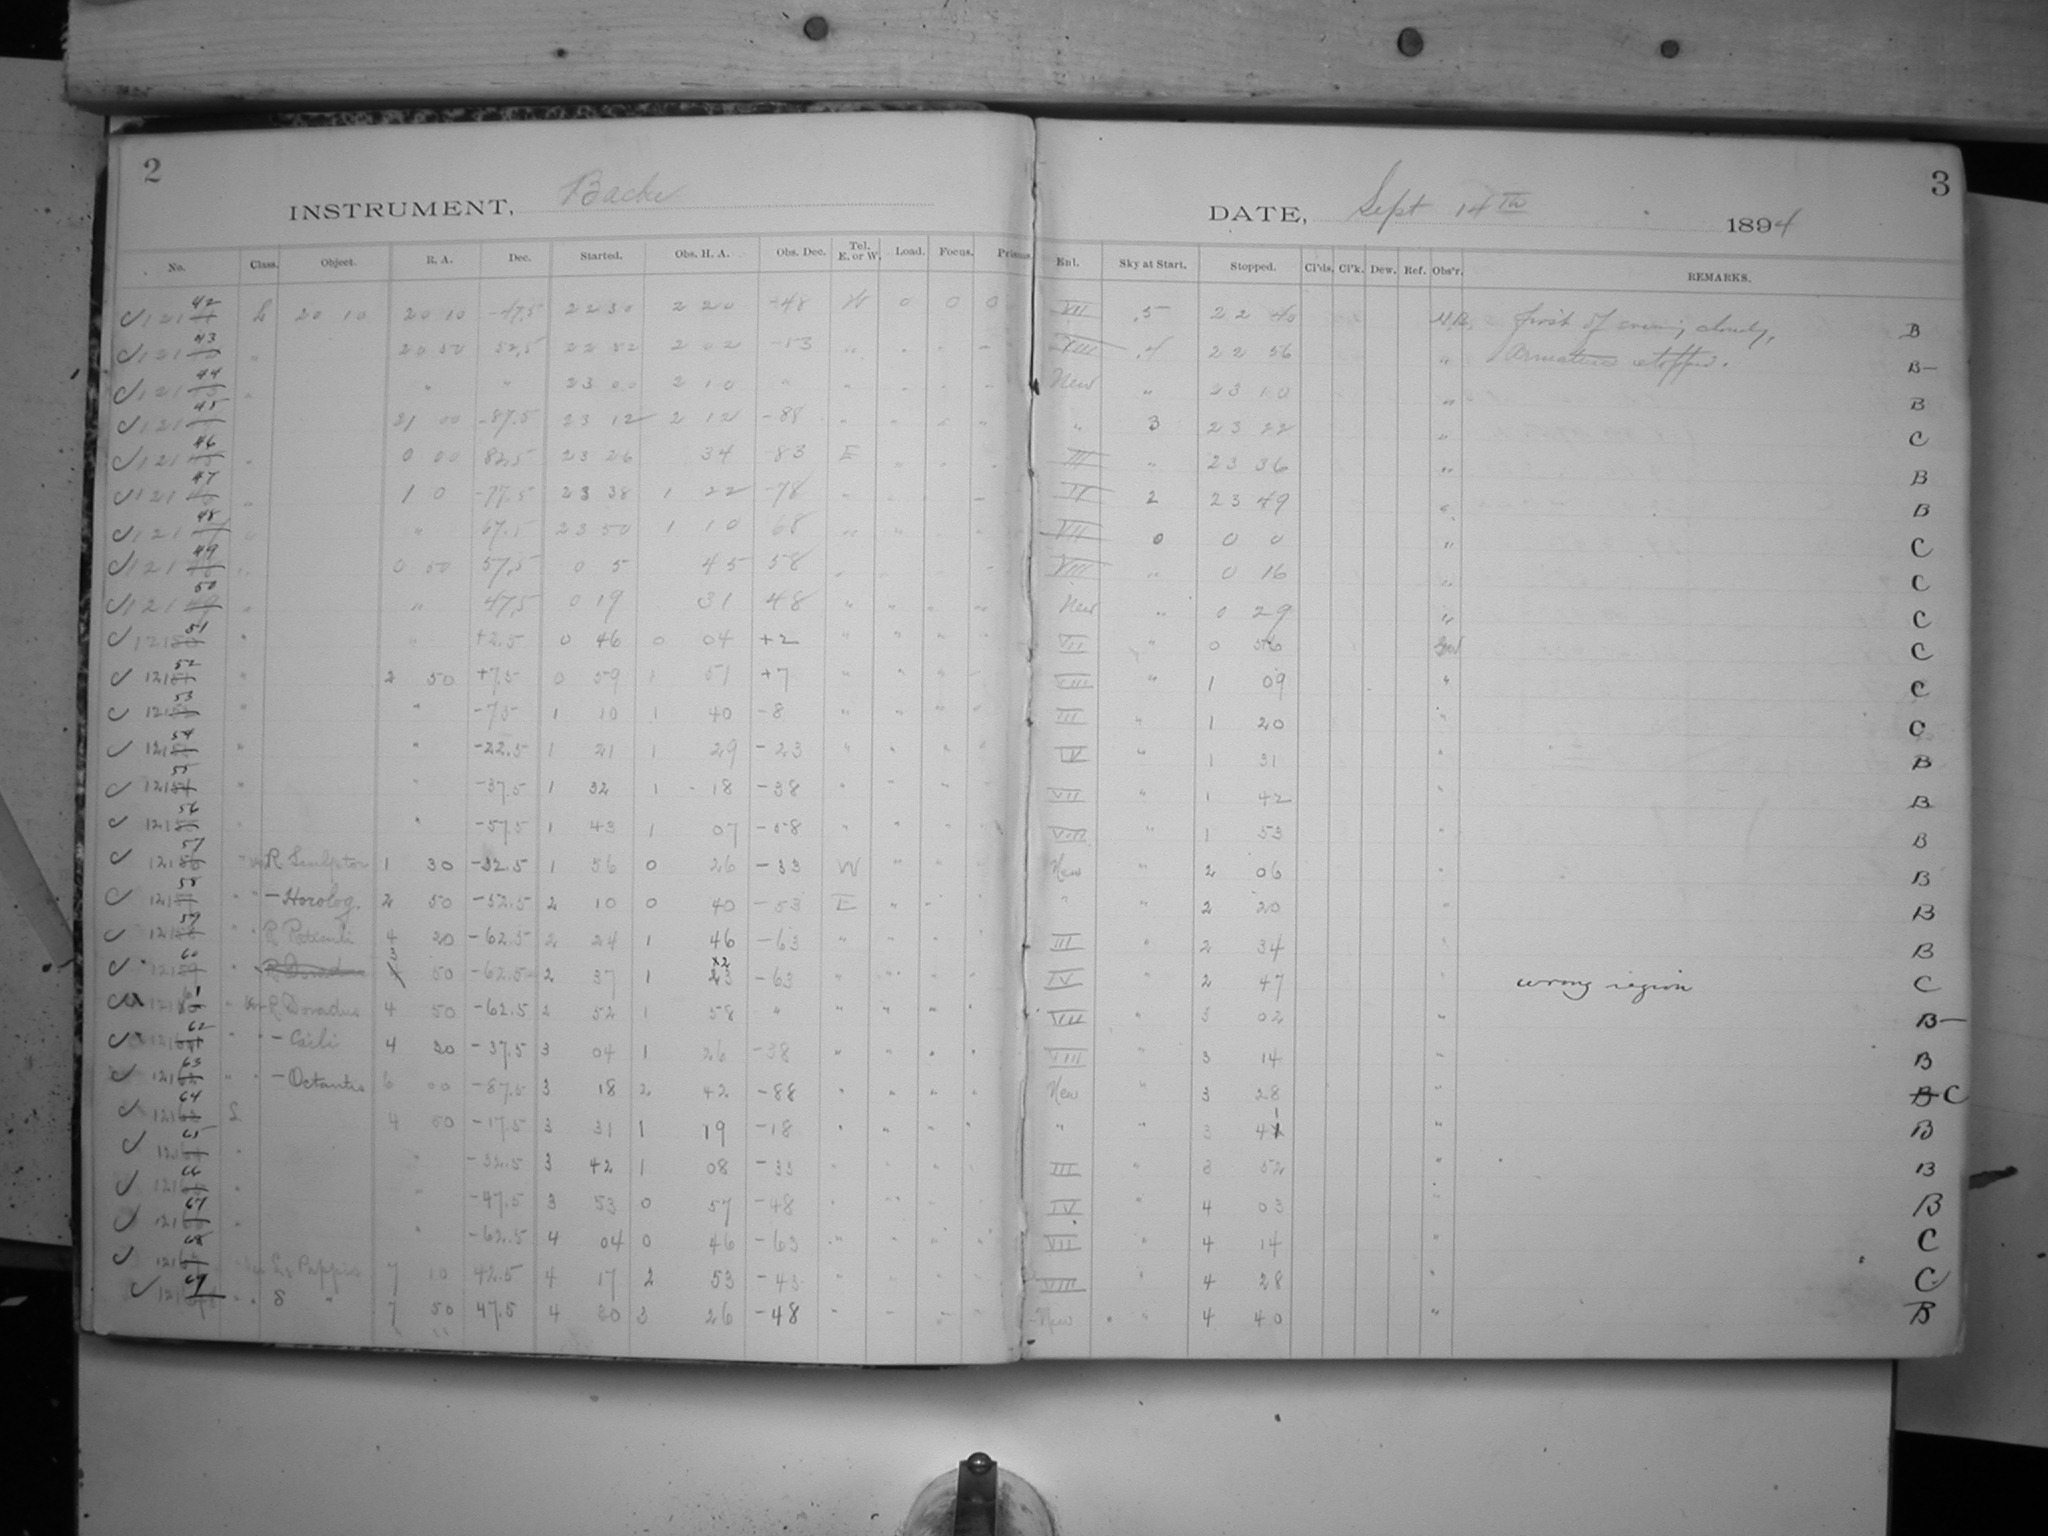 2
INSTRUMENT, Bache
No. Class. Object. R. A. Dec. Started. Obs. H. A. Obs. Dec. Tel. E. or W. Load. Focus. Prisms.
3
DATE, Sept 14th 1894
Enl. Sky at Start. Stopped. Cl'ds. Cl'k. Dew. Ref. Obs'r. REMARKS.
42 L 20 10 20 10 -47.5 22 30 2 20 -48 W 0 0 0 VII .5 22 40 first of evening cloudy, B
43 " 20 50 52.5 22 52 2 02 -53 " " " " VIII .4 22 56 " stopped. B-
44 " " " 23 00 2 10 " " " " " New " 23 10 " B
45 " 21 00 -87.5 23 12 2 12 -88 " " " " " 3 23 22 " C
46 " 0 00 82.5 23 26 34 -83 E " " " III " 23 36 " B
47 " 1 0 -77.5 23 38 1 22 -78 " " " " IV 2 23 49 " B
48 " " 67.5 23 50 1 10 68 " " " " VII 0 0 0 " C
49 " 0 50 57.5 0 5 45 58 " " " " VIII " 0 16 " C
50 " " 47.5 0 19 31 48 " " " " New " 0 29 " C
51 " " +2.5 0 46 0 04 +2 " " " " VII " 0 56 C
52 " 2 50 +7.5 0 59 1 51 +7 " " " " VIII " 1 09 " C
53 " " -7.5 1 10 1 40 -8 " " " " III " 1 20 " C
54 " " -22.5 1 21 1 29 -23 " " " " IV " 1 31 " B
55 " " -37.5 1 32 1 18 -38 " " " VII " 1 42 " B
56 " " -57.5 1 43 1 07 -58 " " " " VIII " 1 53 " B
57 R Sculptor 1 30 -32.5 1 56 0 26 -33 W " " " New " 2 06 " B
58 " - Horolog. 2 50 -52.5 2 10 0 40 -53 E " " " " " 2 20 " B
59 " R Reticuli 4 30 -62.5 2 24 1 46 -63 " " " " III " 2 34 B
60 " R Doradus 3 50 -62.5 2 37 1 23 -63 " " " " IV " 2 47 wrong region C
61 " R Doradus 4 50 -62.5 2 52 1 58 " " " " " VII " 3 02 " B-
62 " " - Caeli 4 30 -37.5 3 04 1 26 -38 " " " " VIII " 3 14 " B
63 " " - Octantis 6 00 -87.5 3 18 2 42 -88 " " " " New " 3 28 " B C
64 L 4 50 -17.5 3 31 1 19 -18 " " " " " " 3 41 " B
65 " " -32.5 3 42 1 08 -33 " " " " III " 3 52 " B
66 " " -47.5 3 53 0 57 -48 " " " IV " 4 03 " B
67 " " -62.5 4 04 0 46 -63 " " " " VII " 4 14 " C
68 L2 Puppis 7 10 42.5 4 17 2 53 -43 " " " " VIII " 4 28 " C
69 " " S " 7 50 47.5 4 30 3 26 -48 " " " " New " 4 40 " B